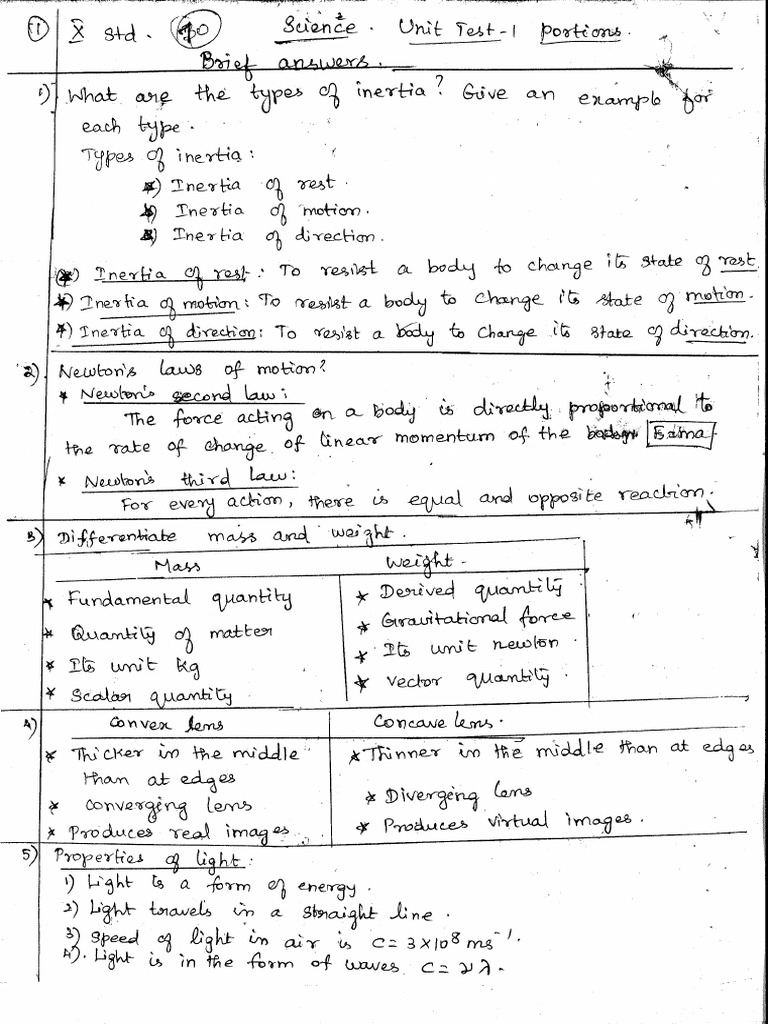 ① X std. 10 Science. Unit Test-1 portions.
Brief answers.
1) What are the types of inertia? Give an example for
each type.
Types of inertia:
*) Inertia of rest.
*) Inertia of motion.
*) Inertia of direction.
*) Inertia of rest: To resist a body to change its state of rest
*) Inertia of motion: To resist a body to change its state of motion.
*) Inertia of direction: To resist a body to change its state of direction.
2) Newton's laws of motion?
* Newton's second law:
The force acting on a body is directly proportional to
the rate of change of linear momentum of the body
* Newton's third law:
For every action, there is equal and opposite reaction.
3) Differentiate mass and weight.
Mass Weight.
* Fundamental quantity * Derived quantity
* Quantity of matter * Gravitational force
* Its unit kg * Its unit newton
* Scalar quantity * vector quantity.
4) Convex lens Concave lens.
* Thicker in the middle * Thinner in the middle than at edges
than at edges
* converging lens * Diverging lens
* Produces real images. * Produces virtual images.
5) Properties of light:
1) Light is a form of energy.
2) Light travels in a straight line.
3) Speed of light in air is C = 3×10⁸ ms⁻¹.
4). Light is in the form of waves C = νλ.